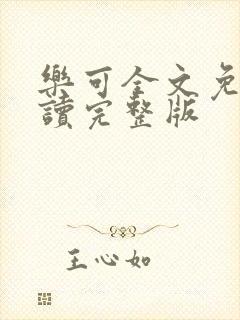 樂可全文免
讀完整版
王心如